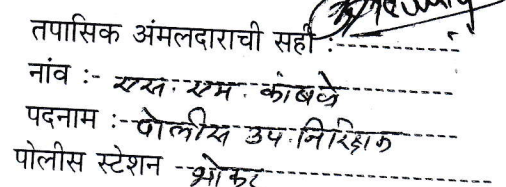 तपासिक अंमलदाराची सही :-
नांव :- एस. एम. कांबळे
पदनाम :- पोलीस उप निरिक्षक
पोलीस स्टेशन भोकर